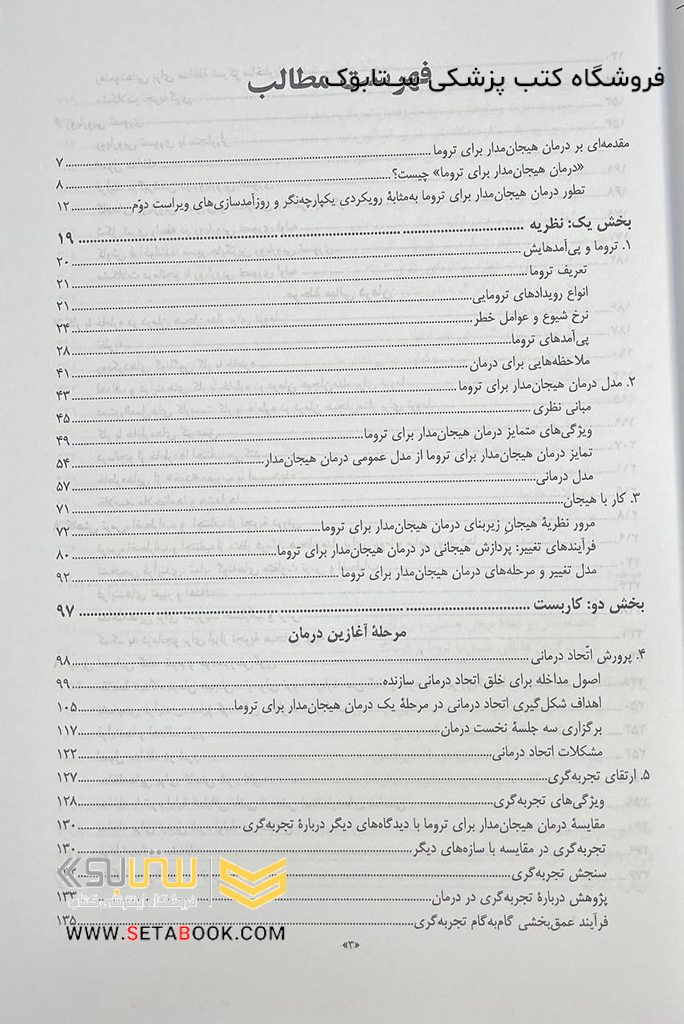 فروشگاه کتب پزشکی ستابوک
فهرست مطالب
مقدمه‌ای بر درمان هیجان‌مدار برای تروما ۷
«درمان هیجان‌مدار برای تروما» چیست؟ ۸
تطور درمان هیجان‌مدار برای تروما به‌مثابهٔ رویکردی یکپارچه‌نگر و روزآمدسازی‌های ویراست دوّم ۱۲
بخش یک: نظریه ۱۹
۱. تروما و پی‌آمدهایش ۲۰
تعریف تروما ۲۱
انواع رویدادهای ترومایی ۲۱
نرخ شیوع و عوامل خطر ۲۴
پی‌آمدهای تروما ۲۸
ملاحظه‌هایی برای درمان ۴۱
۲. مدل درمان هیجان‌مدار برای تروما ۴۳
مبانی نظری ۴۵
ویژگی‌های متمایز درمان هیجان‌مدار برای تروما ۴۹
تمایز درمان هیجان‌مدار برای تروما از مدل عمومی درمان هیجان‌مدار ۵۴
مدل درمانی ۵۷
۳. کار با هیجان ۷۱
مرور نظریهٔ هیجانِ زیربنای درمان هیجان‌مدار برای تروما ۷۲
فرآیندهای تغییر: پردازش هیجانی در درمان هیجان‌مدار برای تروما ۸۰
مدل تغییر و مرحله‌های درمان هیجان‌مدار برای تروما ۹۲
بخش دو: کاربست ۹۷
مرحلهٔ آغازین درمان
۴. پرورش اتّحاد درمانی ۹۸
اصول مداخله برای خلق اتحاد درمانی سازنده ۹۹
اهداف شکل‌گیری اتحاد درمانی در مرحلهٔ یک درمان هیجان‌مدار برای تروما ۱۰۵
برگزاری سه جلسهٔ نخست درمان ۱۱۷
مشکلات اتحاد درمانی ۱۲۲
۵. ارتقای تجربه‌گری ۱۲۷
ویژگی‌های تجربه‌گری ۱۲۸
مقایسهٔ درمان هیجان‌مدار برای تروما با دیدگاه‌های دیگر دربارهٔ تجربه‌گری ۱۳۰
تجربه‌گری در مقایسه با سازه‌های دیگر ۱۳۰
سنجش تجربه‌گری
پژوهش دربارهٔ تجربه‌گری در درمان ۱۳۳
فرآیند عمق‌بخشی گام‌به‌گام تجربه‌گری ۱۳۵
ستابوک
WWW.SETABOOK.COM
«۳»